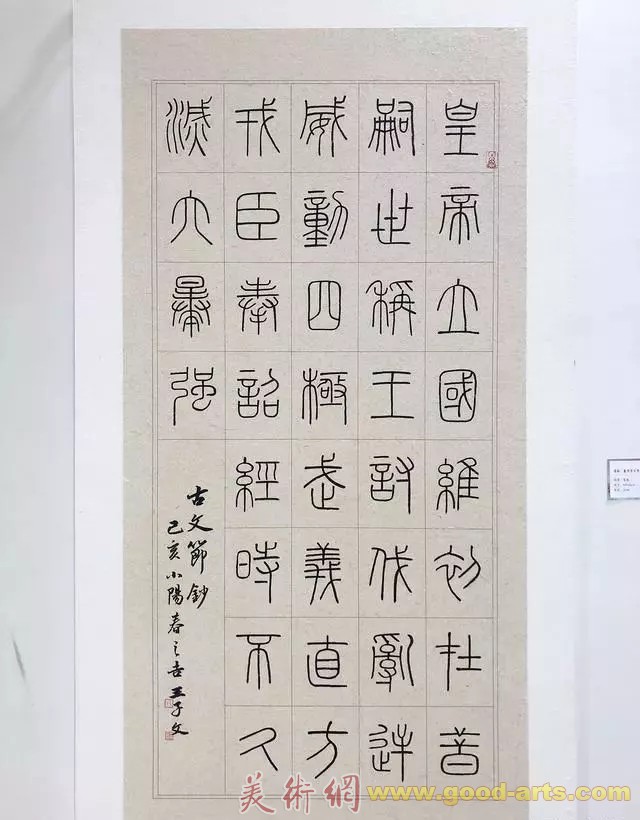 皇帝立國維初在昔
嗣世稱王討伐亂逆
威動四極武義直方
戎臣奉詔經時不久
滅六暴强
古文節鈔
己亥小陽春之吉王子文
美術網
www.good-arts.com